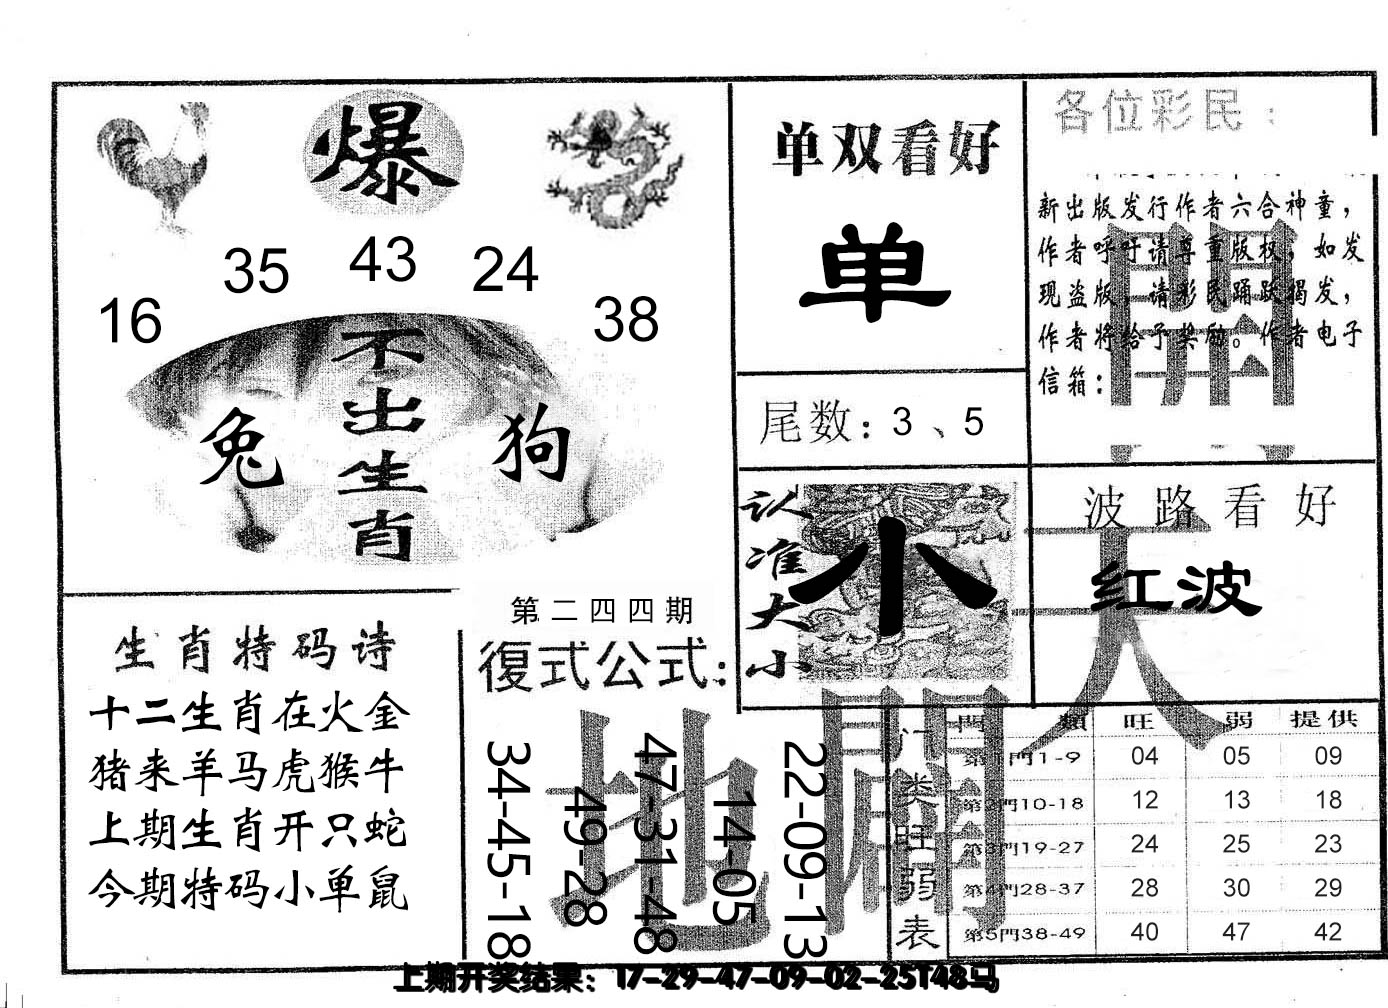 爆
16 35 43 24 38
不出生肖
兔 狗
单双看好
单
尾数：3、5
各位彩民：
新出版发行作者六合神童，
作者呼吁请尊重版权，如发
现盗版，请彩民踊跃揭发，
作者将给予奖励。作者电子
信箱：
開
认准大小
小
波路看好
红波
天
生肖特码诗
十二生肖在火金
猪来羊马虎猴牛
上期生肖开只蛇
今期特码小单鼠
第二四四期
復式公式：
34-45-18
49-28
47-31-48
14-05
22-09-13
地 開
门类旺弱表
門類 旺 弱 提供
第1門1-9 04 05 09
第2門10-18 12 13 18
第3門19-27 24 25 23
第4門28-37 28 30 29
第5門38-49 40 47 42
上期开奖结果：17-29-47-09-02-25T48马